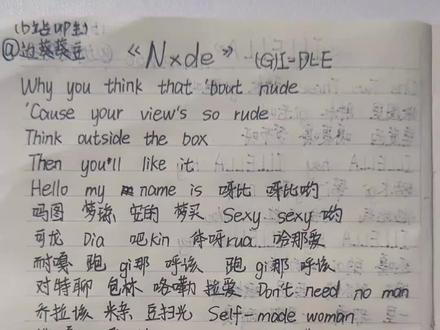 (b站UP主)
@边葵葵豆 《Nxde》 (G)I-DLE
Why you think that 'bout nude
'Cause your view's so rude
Think outside the box
Then you'll like it
Hello my name is 呀比 呀比哟
吗图 梦 安的 梦买 Sexy sexy哟
可龙 Dia 吧kin 体呀rua 哈那爱
耐嗓 跑 gi那 呼该 跑 gi那 呼该
对特聊 包林 咯嘞 拉爱 Don't need no man
乔拉该 米亲 豆扫光 Self-made woman